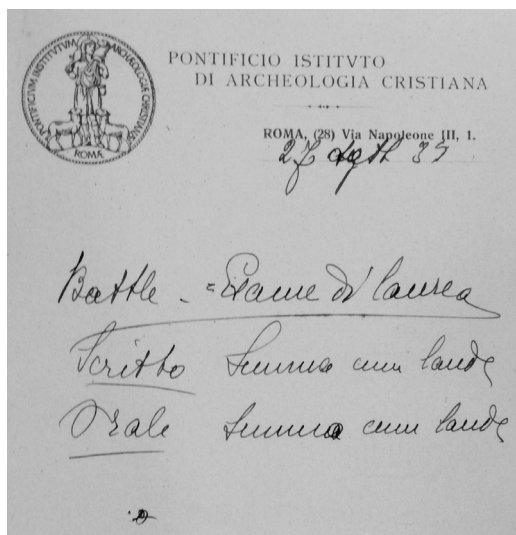 PONTIFICIVM INSTITVTVM ARCHAEOLOGIAE CHRISTIANAE
ROMAE
PONTIFICIO ISTITVTO
DI ARCHEOLOGIA CRISTIANA
ROMA, (28) Via Napoleone III, 1.
27
Battle - Esame di laurea
Scritto Summa cum laude
Orale Summa cum laude